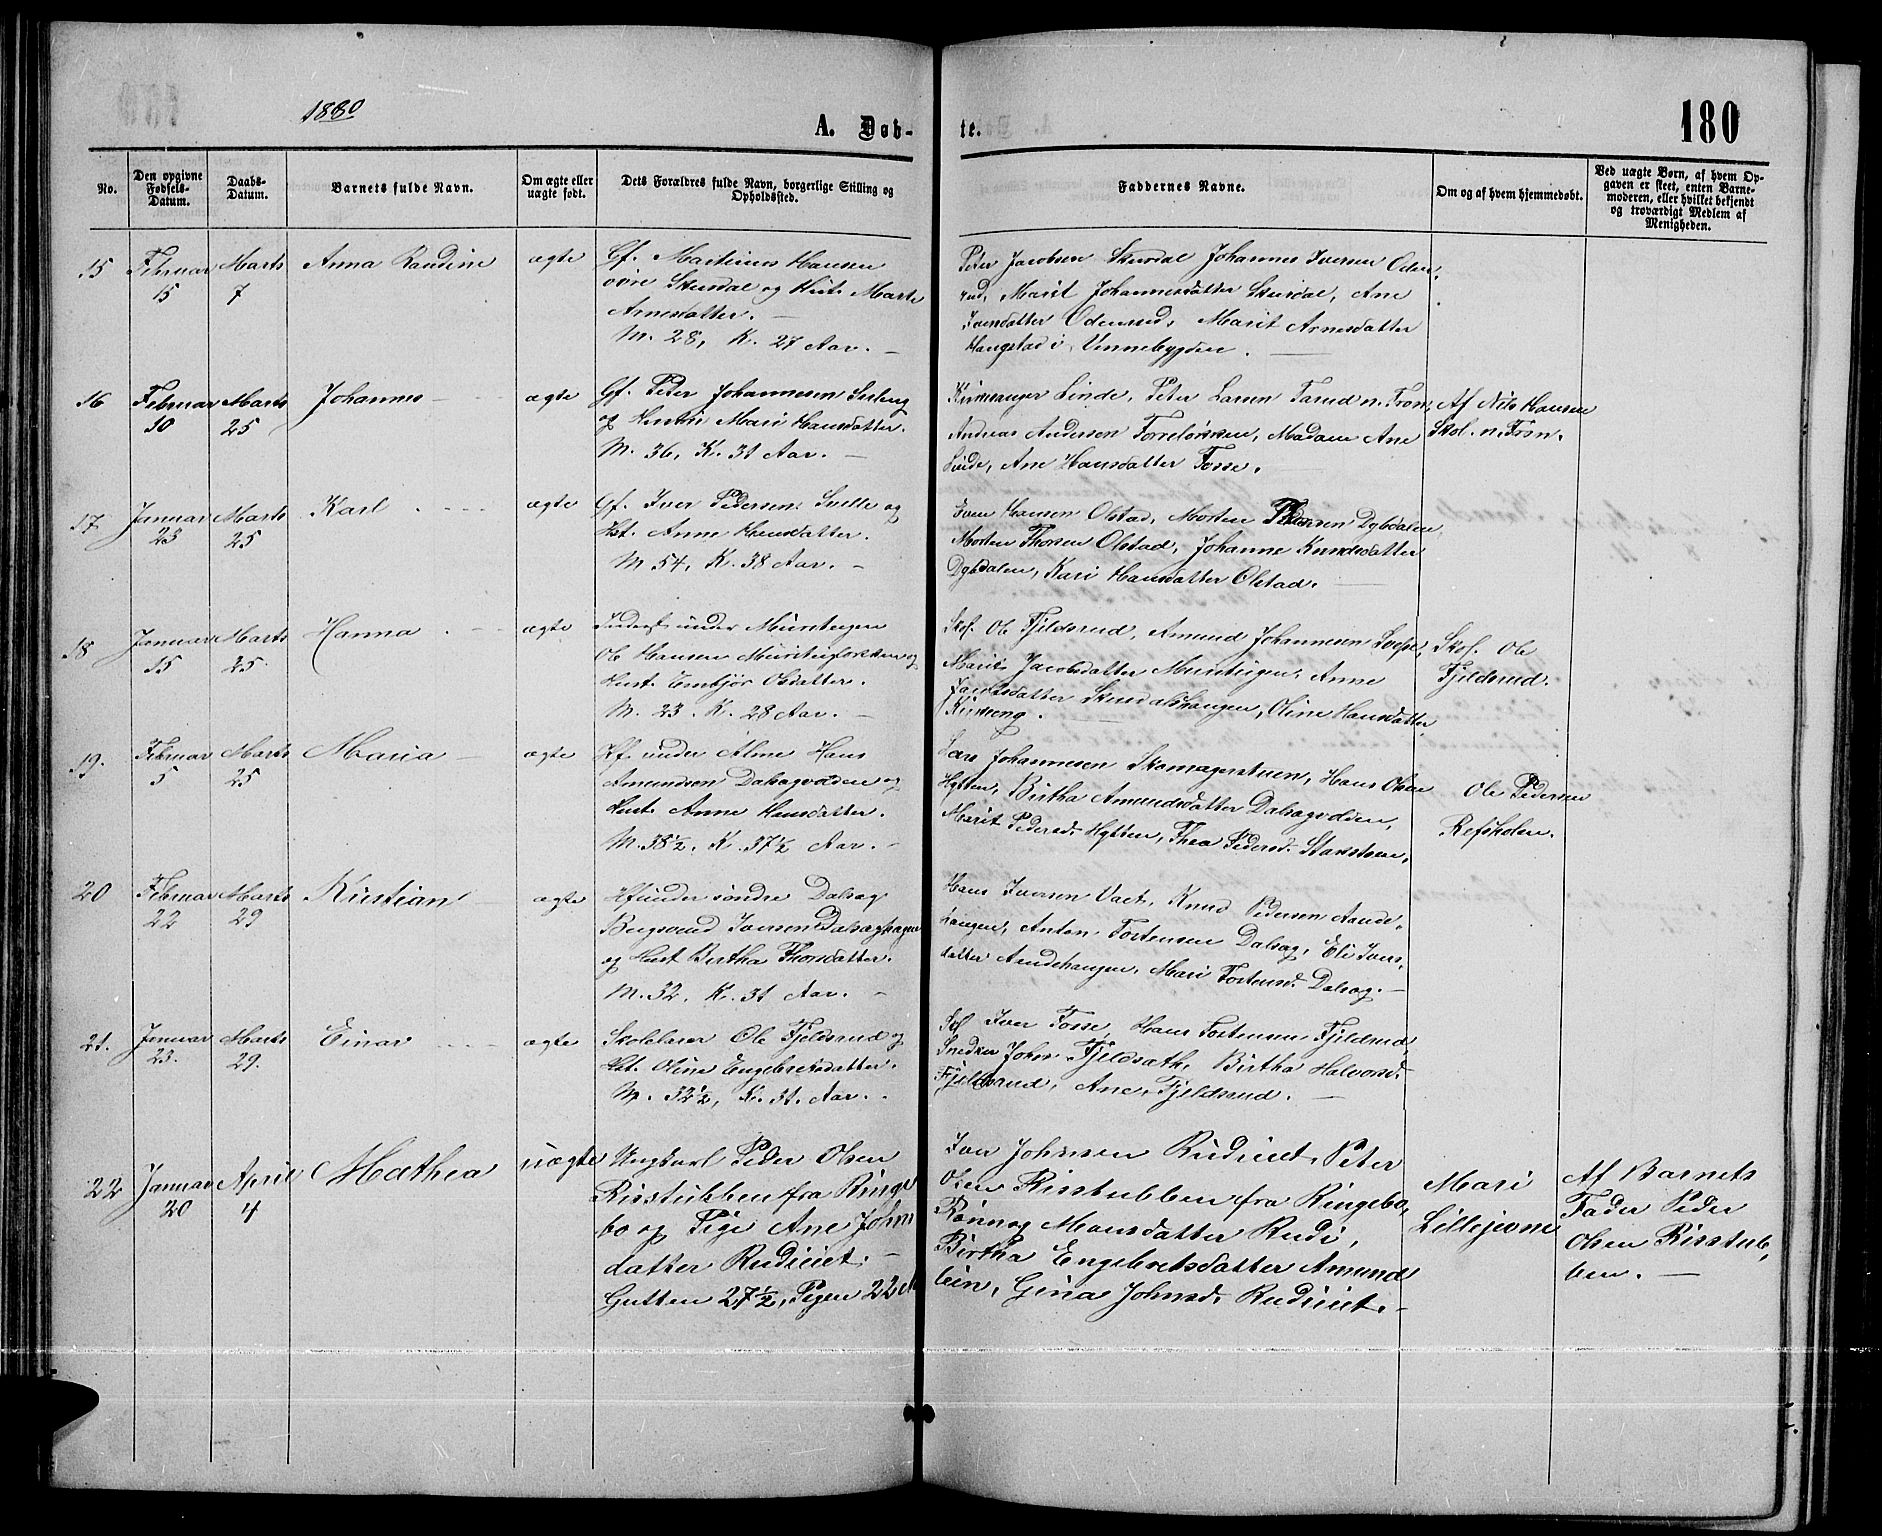 1880
A. Døb-
te.
180
No.
Den opgivne Fødsels-Datum.
Daabs-Datum.
Barnets fulde Navn.
Om ægte eller uægte født.
Dets Forældres fulde Navn, borgerlige Stilling og Opholdssted.
Faddernes Navne.
Om og af hvem hjemmedøbt.
Ved uægte Børn, af hvem Op-
gaven er skeet, enten Barne-
moderen, eller hvilket bekjendt
og troværdigt Medlem af
Menigheden.
15 Februar 15 Marts 7 Anna Randine ægte
Gf. Martinus Hansen
øvre Skurdal og Hust. Marte
Arnesdatter. —
M. 28, K. 27 Aar. —
Peter Jacobsen Skurdal Johannes Iversen Oden-
rud, Marit Johannesdatter Skurdal, Ane
Iversdatter Odenrud, Marit Arnesdatter
Haugstad i Vinnebygden. —
16 Februar 10 Marts 25 Johannes ægte
Gf. Peder Johannesen
og Hustru Mari Hansdatter.
M. 36, K. 31 Aar. —
Kirkesanger Linde, Peter Larsen Tarud n. Fron,
Andreas Andersen Madam Ane
Linde, Ane Hansdatter Tosse.
Af Nils Hansen
Skol. n. Fron.
17 Januar 23 Marts 25 Karl ægte
Gf. Iver Pedersen og
Hst. Anne Hansdatter.
M 54, K. 38 Aar. —
Even Hansen Olstad, Morten Pedersen Dybdalen,
Morten Thorsen Olstad, Johanne Knudsdatter
Dybdalen, Kari Hansdatter Olstad. —
18 Januar 15 Marts 25. Hanna ægte
Inderst under
Ole Hansen og
Hust. Embjør Olsdatter.
M. 23. K. 28 Aar. —
Skol. Ole Fjeldsrud, Amund Johannesen
Marit Jacobsdatter Anne
Jacobsdatter Skurdalshaugen, Oline Hansdatter
Skol. Ole
Fjeldsrud.
19. Februar 5 Marts 25 Maria ægte
Hf. under Alme Hans
Amundsen Dalsegvolden og
Hust. Anne Hansdatter.
M. 38½, K. 37½ Aar. —
Lars Johannesen Skomagerstuen, Hans Olsen
Hytten, Birtha Amundsdatter Dalsegvolden,
Marit Pedersd. Hytten, Thea Pedersd.
Ole Pedersen
Refsholen.
20 Februar 22 Marts 29 Kristian ægte
Hf under søndre Dalseg
Bergsvend Iversen Dalseghagen
og Hust Birtha Thorsdatter.
M. 32, K. 31 Aar. —
Hans Iversen Knud Pedersen Aande-
haugen, Anton Tostensen Dalseg, Eli Ivers-
datter Aandehaugen, Mari Tostensd. Dalseg. —
21. Januar 25. Marts 29. Einar ægte
Skolelærer Ole Fjeldsrud og
Hst. Oline Engebretsdatter.
M. 32½, K. 31. Aar. .
Skl. Iver Tosse, Hans Tostensen Fjeldsrud,
Snedker John Fjeldsrud, Birtha Halvorsd.
Fjeldsrud, Ane Fjeldsrud. —
22 Januar 20 April 4 Mathea uægte
Ungkarl Peder Olsen
Risstubben fra Ringe
bo og Pige Ane Johns
datter Rudiiet. —
Gutten 27½, Pigen 22
Iver Johnsen Rudiiet, Peter
Olsen Risstubben fra Ringebo,
Rønnog Mansdatter Rudi,
Birtha Engebretsdatter Amund
lien, Gina Johnsd. Rudiiet. —
Mari
Lillejevne
Af Barnets
Fader Peder
Olsen Risstub-
ben. —